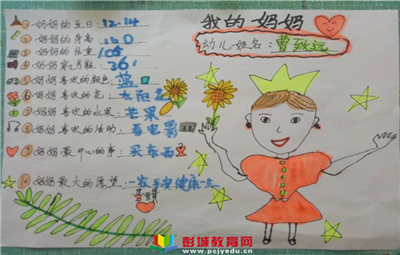 我的妈妈
幼儿姓名：曹致远
①妈妈的生日：12.14
②妈妈的身高：160
③妈妈的体重：105
妈妈穿几号鞋：36
⑤妈妈喜欢的颜色：蓝
⑥妈妈喜欢的花：太阳花
妈妈喜欢的水果：芒果
妈妈喜欢的活动：看电影
妈妈最开心的事：买东西
⑩妈妈最大的愿望：一家平安健康
彭城教育网
www.pcjyedu.cn